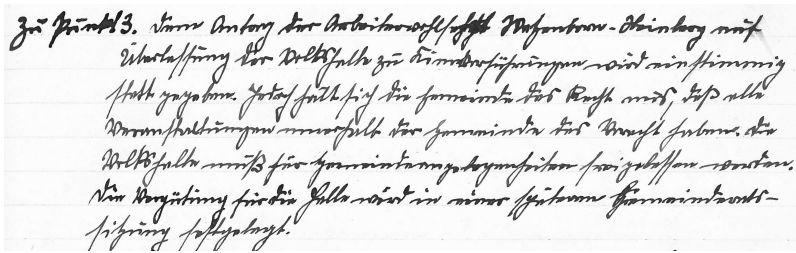 Zu Punkt 3. Dem Antrag der Arbeiterwohlfahrt Watzenborn-Steinberg auf
Überlassung der Volkshalle zu Kinovorführungen wird einstimmig
statt gegeben. Jedoch hält sich die Gemeinde das Recht aus, daß alle
Veranstaltungen innerhalb der Gemeinde das Vorrecht haben. Die
Volkshalle muß für Gemeindeangelegenheiten freigelassen werden.
Die Vergütung für die Halle wird in einer späteren Gemeinderats-
sitzung festgelegt.